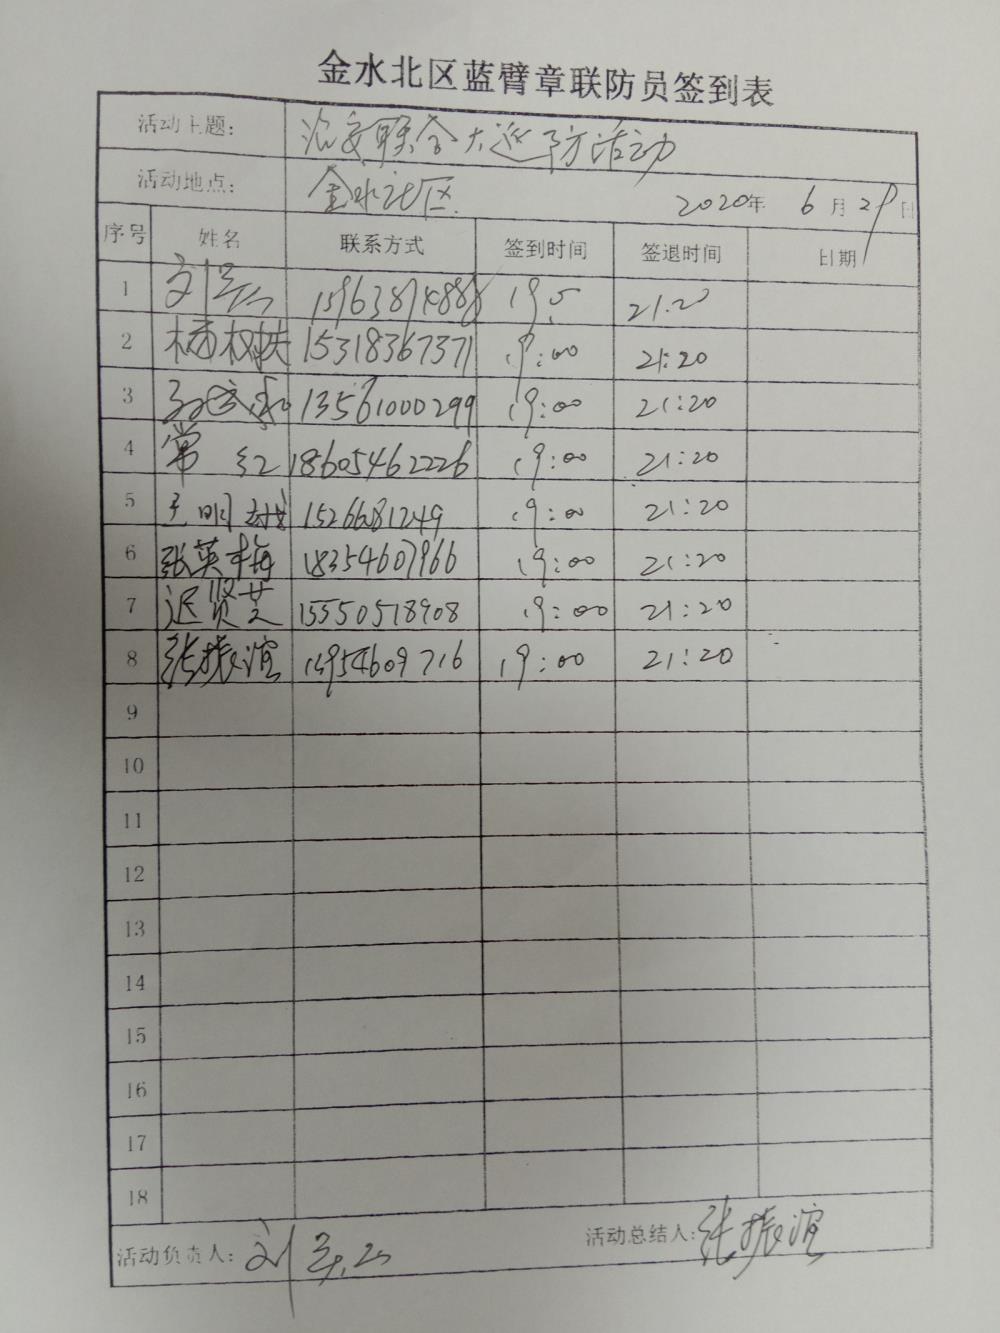 金水北区蓝臂章联防员签到表
活动主题： 治安联合大巡防活动
活动地点： 金水北区 2020年 6月29日
序号 姓名 联系方式 签到时间 签退时间 日期
1 15963894888 19. 21.20
2 15318367371 19:00 21:20
3 13561000299 19:00 21:20
4 常红 18605462226 19:00 21:20
5 15266681249 19:00 21:20
6 张英梅 18354607966 19:00 21:20
7 迟贤芝 15550518908 19:00 21:20
8 张振谊 13954609716 19:00 21:20
9
10
11
12
13
14
15
16
17
18
活动负责人： 刘 活动总结人：张振谊